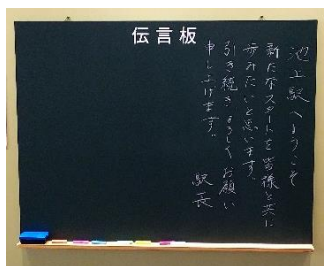 伝言板
池上駅へようこそ
新たなスタートを皆様と共に
歩みたいと思います。
引き続きよろしくお願い
申し上げます。
駅長